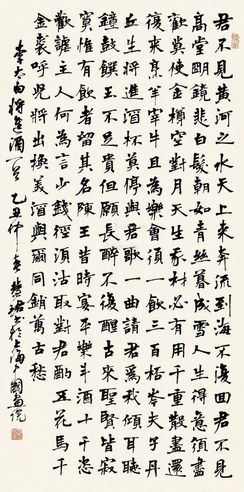 君不見黃河之水天上來奔流到海不復回君不見
高堂明鏡悲白髮朝如青絲暮成雪人生得意須盡
歡莫使金樽空對月天生我材必有用千金散盡還
復來烹羊宰牛且為樂會須一飲三百杯岑夫子丹
丘生將進酒杯莫停與君歌一曲請君為我傾耳聽
鐘鼓饌玉不足貴但願長醉不復醒古來聖賢皆寂
寞惟有飲者留其名陳王昔時宴平樂斗酒十千恣
歡謔主人何為言少錢徑須沽取對君酌五花馬千
金裘呼兒將出換美酒與爾同銷萬古愁
李太白將進酒一首 乙丑仲 書於上海中國畫院